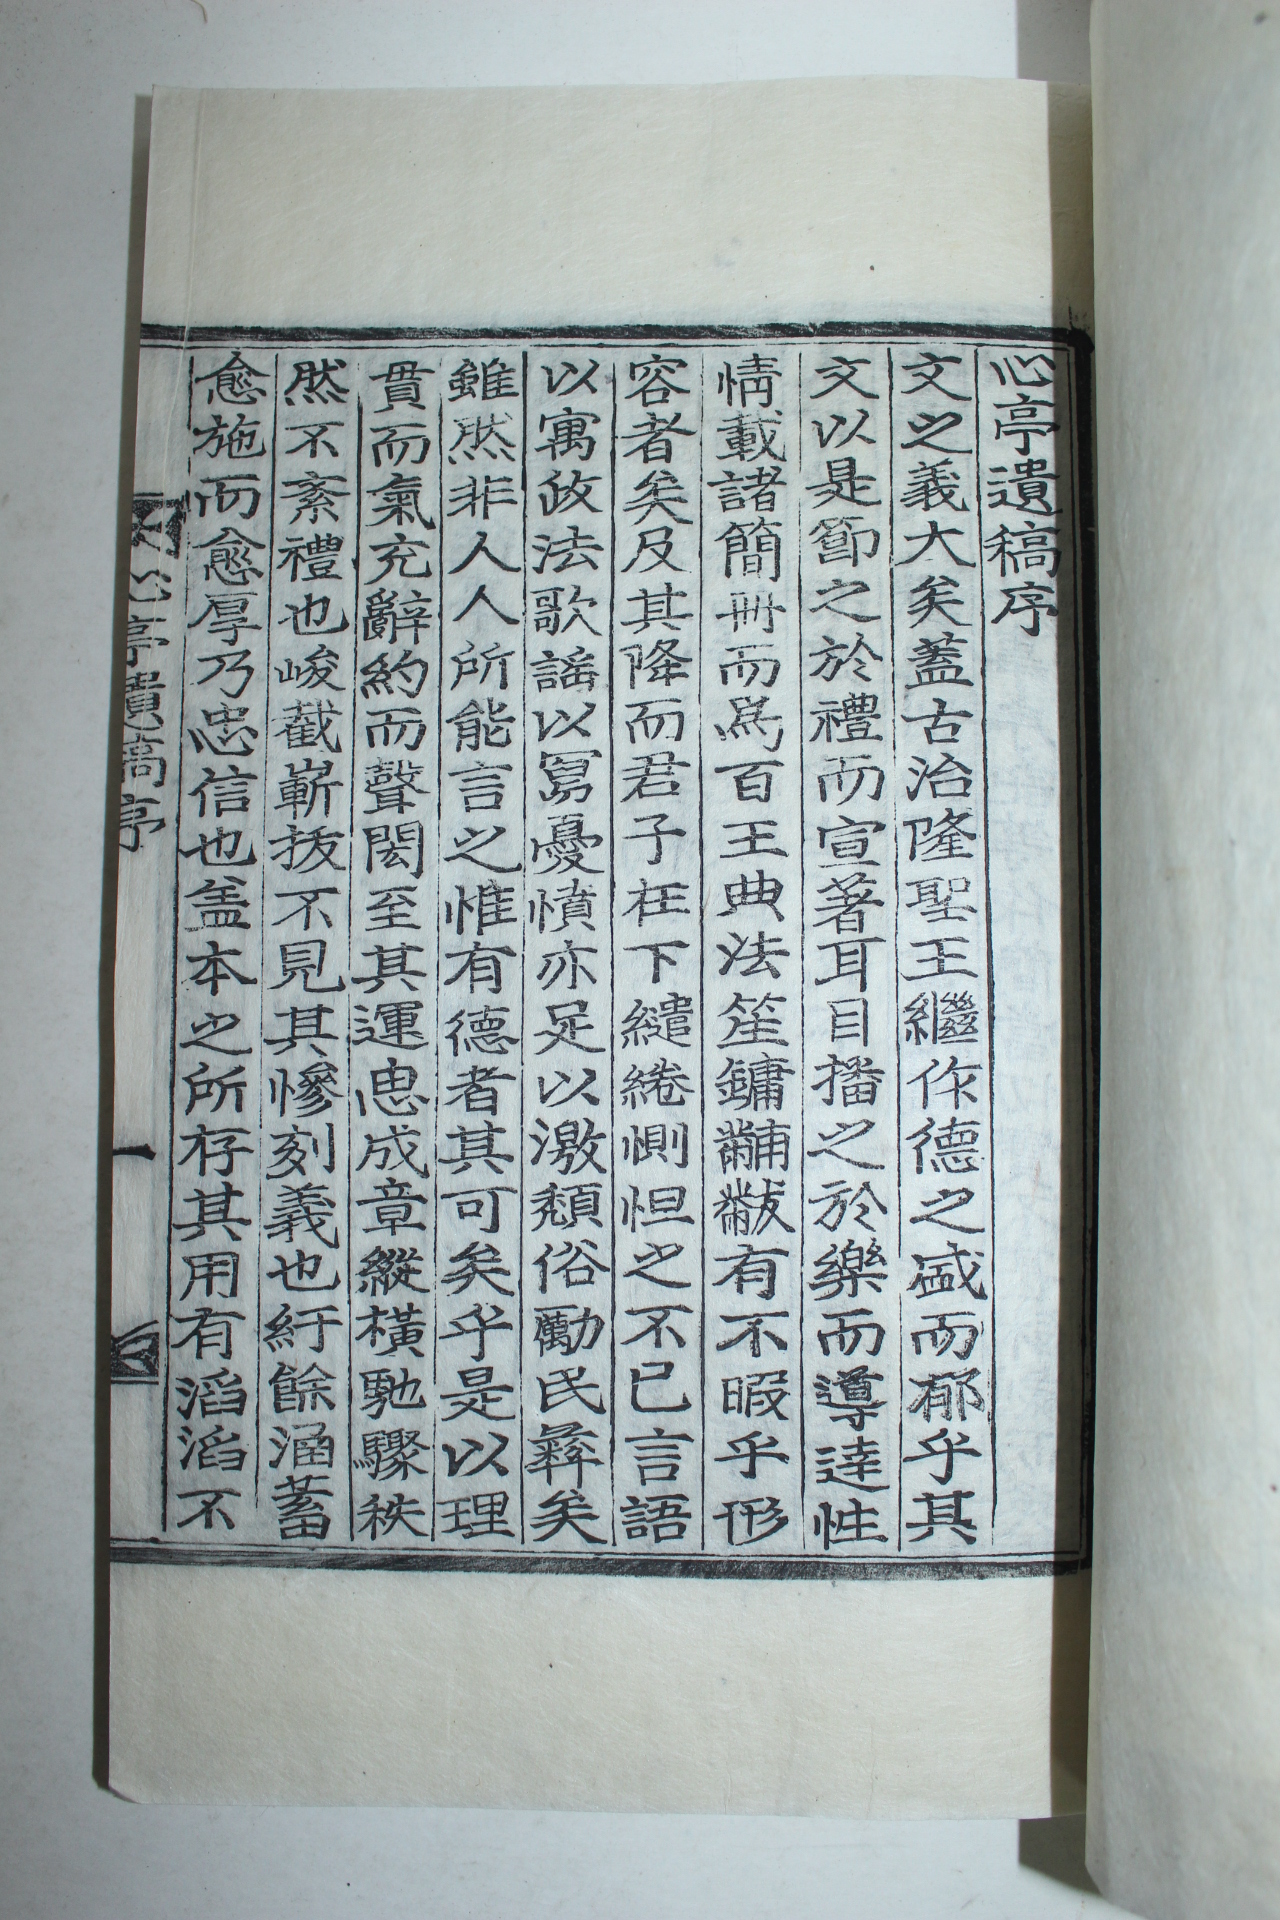 心亭遺稿序
文之義大矣蓋古治隆聖王繼作德之盛而郁乎其
文以是節之於禮而宣著耳目播之於樂而導達性
情載諸簡冊而爲百王典法笙鏞黼黻有不暇乎形
容者矣及其降而君子在下繾綣惻怛之不已言語
以寓政法歌謡以寫憂憤亦足以激頹俗勵民彛矣
雖然非人人所能言之惟有德者其可矣乎是以理
貫而氣充辭約而聲閎至其運思成章縱橫馳驟秩
然不紊禮也峻截嶄拔不見其慘刻義也紆餘涵蓄
愈施而愈厚乃忠信也盖本之所存其用有滔滔不
心亭遺稿序
一